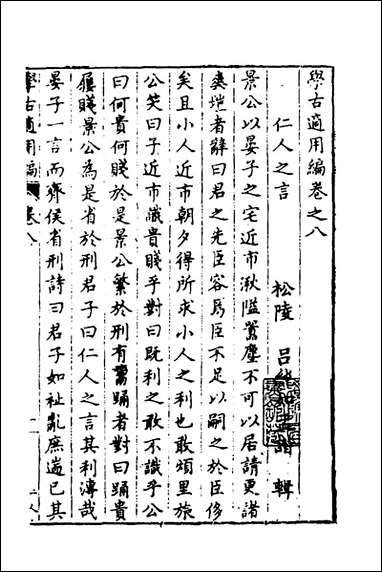 學古適用編卷之八
松陵 呂 輯
仁人之言
景公以晏子之宅近市湫隘囂塵不可以居請更諸
爽塏者辭曰君之先臣容焉臣不足以嗣之於臣侈
矣且小人近市朝夕得所求小人之利也敢煩里旅
公笑曰子近市識貴賤乎對曰既利之敢不識乎公
曰何貴何賤於是景公繁於刑有鬻踊者對曰踊貴
屨賤景公為是省於刑君子曰仁人之言其利溥哉
晏子一言而齊侯省刑詩曰君子如祉亂庶遄已其
學古適用編 卷八